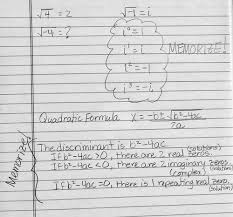 √4 = 2
√-4 = ?
√-1 = i
i⁰ = 1
i¹ = i
i² = -1
i³ = -i
MEMORIZE!
Quadratic Formula X = -b ± √b²-4ac
2a
Memorize!
The discriminant is b²-4ac (solutions)
If b²-4ac > 0, there are 2 real zeros.
If b²-4ac < 0, there are 2 imaginary zeros.
(complex) (solutions)
If b²-4ac = 0, there is 1 repeating real zero.
(solution)